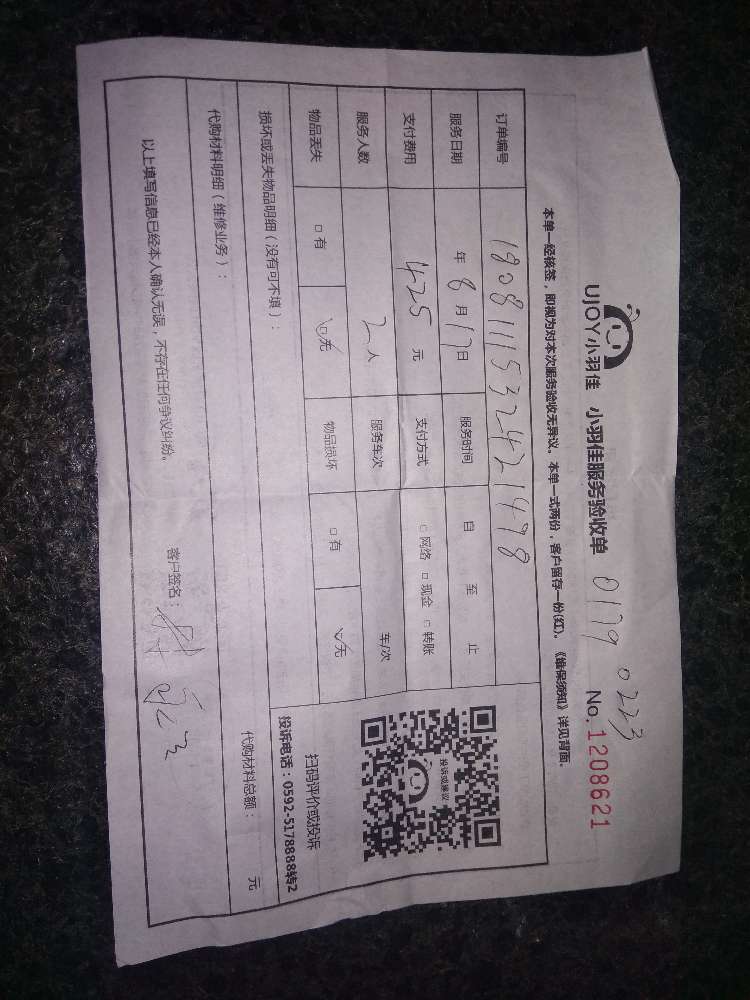 UJOY小羽佳 小羽佳服务验收单 0179 0223
No.1208621
本单一经核签，即视为对本次服务验收无异议。本单一式两份，客户留存一份(红)。《维保须知》详见背面.
订单编号 180811153242421478
服务日期 年 8 月 17 日 服务时间 自 至 止
支付费用 425 元 支付方式 □ 网络 □ 现金 □ 转账
服务人数 2 人 服务车次 车/次
物品丢失 □ 有 ☑ 无 物品损坏 □ 有 ☑ 无
投诉或建议
扫码评价或投诉
投诉电话：0592-5178888转2
损坏或丢失物品明细（没有可不填）：
代购材料明细（维修业务）： 代购材料总额： 元
以上填写信息已经本人确认无误，不存在任何争议纠纷。
客户签名：